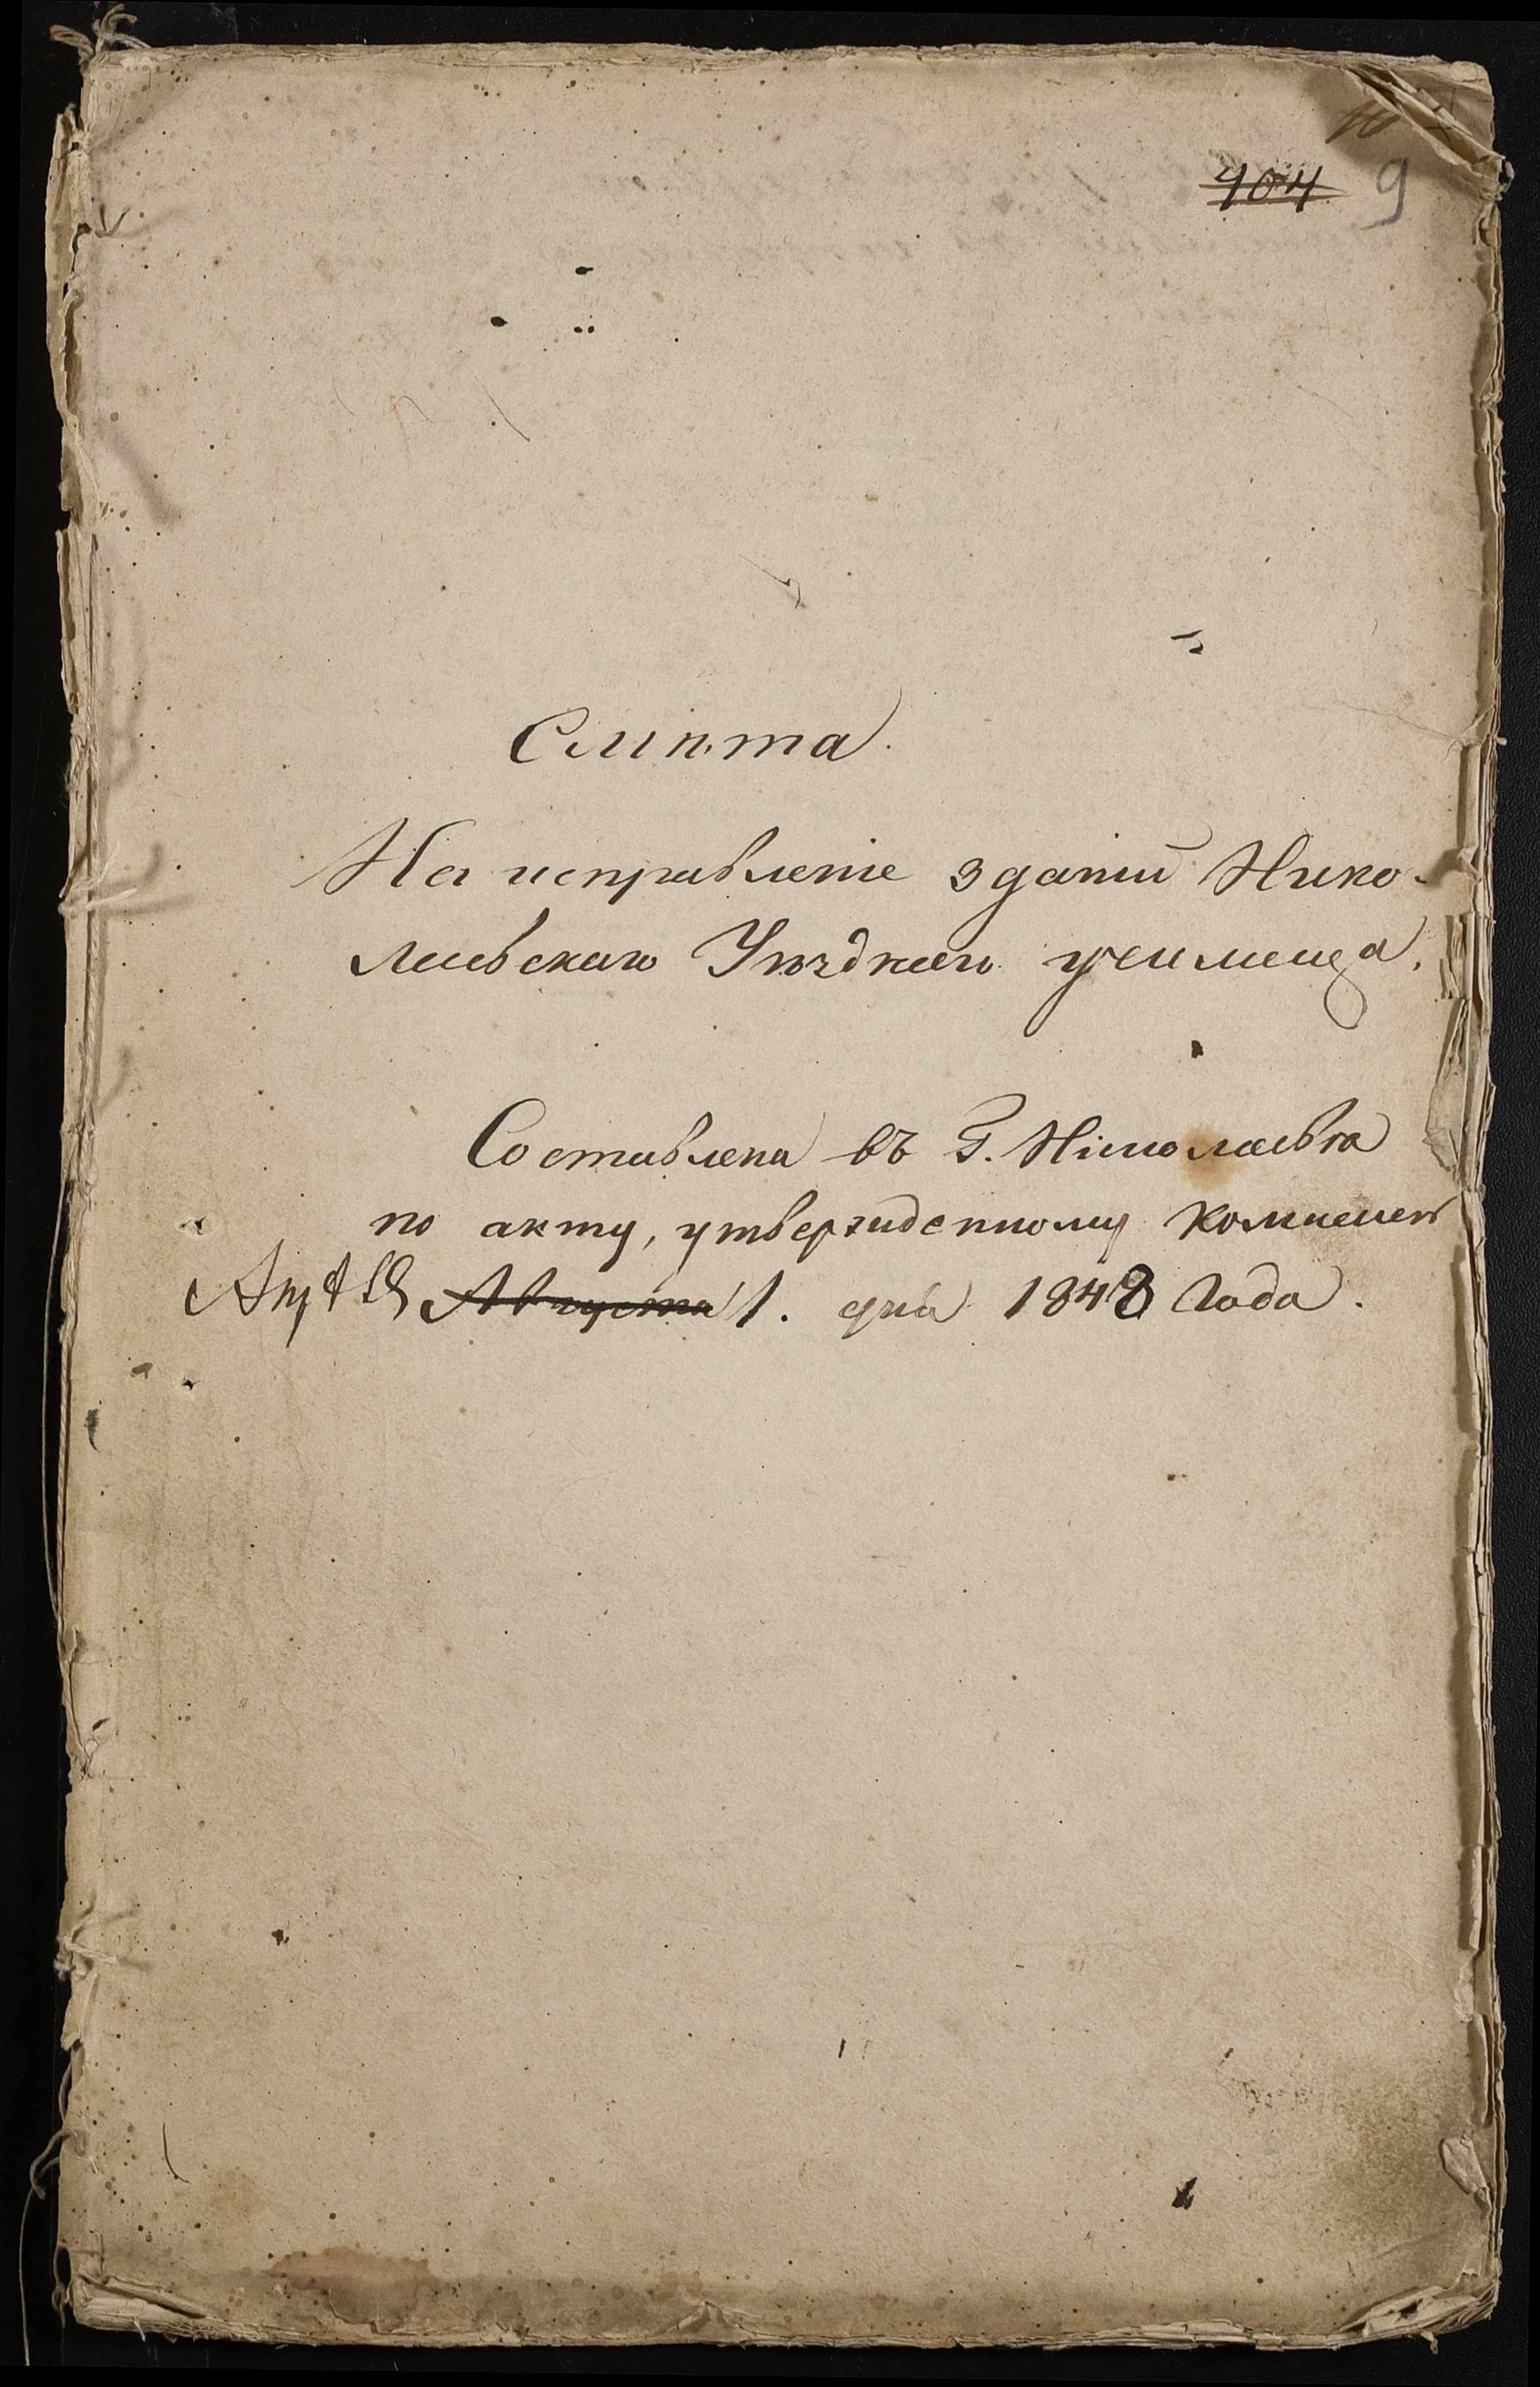 404 9
Смѣта.
На исправленіе зданій Нико-
лаевскаго Уѣзднаго училища.
Составлена въ Г. Николаевѣ
по акту, утвержденному
Августа 1. дня 1848 Года.